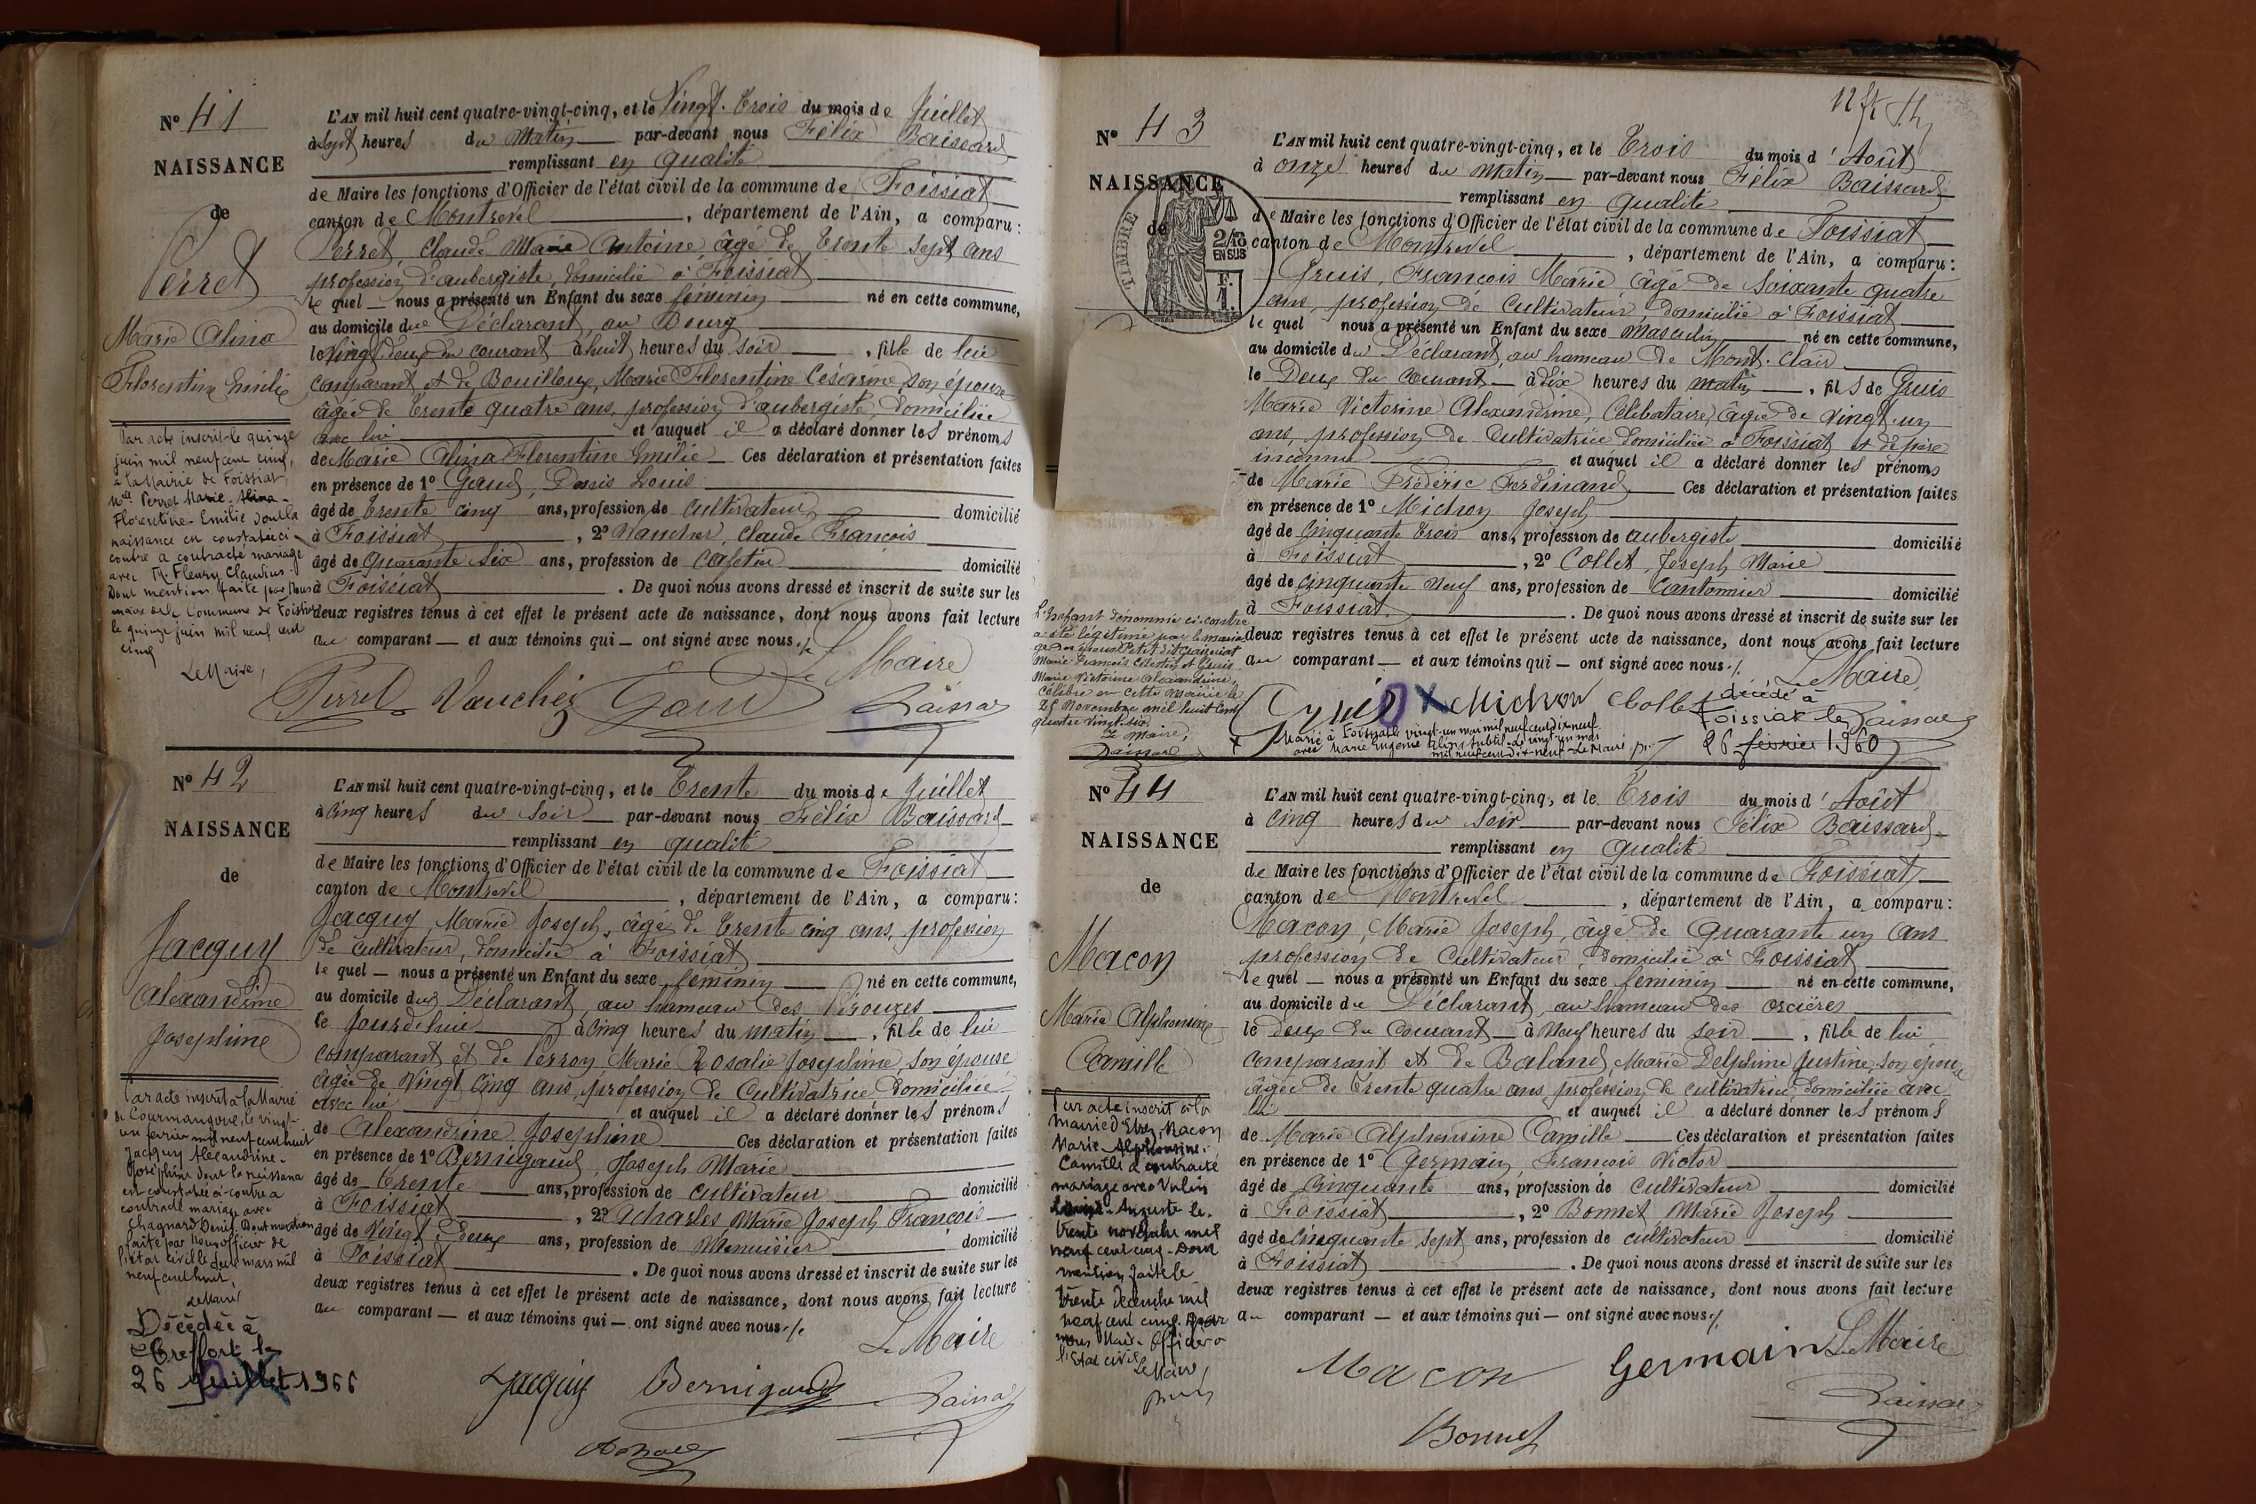 N° 41
NAISSANCE
de
Perret
Marie Alina
Florentine Emilie
Par acte inscrit le quinze
juin mil neuf cent cinq,
à la Mairie de Foissiat
Melle Perret Marie-Alina-
Florentine-Emilie dont la
naissance est constatée ci-
contre a contracté mariage
avec Mr. Fleury Claudius.
Dont mention faite par Nous
maire de la Commune de Foissiat
le quinze juin mil neuf cent
cinq
Le Maire,
L'AN mil huit cent quatre-vingt-cinq, et le Vingt-Trois du mois de Juillet
à Sept heures du Matin par-devant nous Félix Baissard
remplissant en qualité
de Maire les fonctions d'Officier de l'état civil de la commune de Foissiat
canton de Montrevel, département de l'Ain, a comparu:
Perret, Claude Marie Antoine, âgé de Trente Sept ans
profession d'aubergiste, domicilié à Foissiat
le quel nous a présenté un Enfant du sexe féminin né en cette commune,
au domicile du Déclarant, au Bourg
le Vingt deux du courant à huit heures du soir, fille de lui
comparant et de Bouilloux, Marie Florentine Césarine, son épouse
âgée de Trente quatre ans, profession d'aubergiste, domiciliée
avec lui et auquel il a déclaré donner les prénoms
de Marie Alina Florentine Emilie Ces déclaration et présentation faites
en présence de 1° Gaud, Denis Louis
âgé de Trente cinq ans, profession de Cultivateur domicilié
à Foissiat, 2° Vaucher, Claude François
âgé de Quarante Six ans, profession de Cafetier domicilié
à Foissiat. De quoi nous avons dressé et inscrit de suite sur les
deux registres tenus à cet effet le présent acte de naissance, dont nous avons fait lecture
au comparant et aux témoins qui ont signé avec nous ./.
Le Maire
Perret Vaucher Gaud
N° 42
NAISSANCE
de
Jacquy
Alexandrine
Joséphine
Par acte inscrit à la Mairie
de Courmangoux, le vingt-
un février mil neuf cent huit
Jacquy Alexandrine-
Joséphine dont la naissance
est constatée ci-contre a
contracté mariage avec
Chagnard Denis. Dont mention
faite par Nous officier de
l'état civil le deux mars mil
neuf cent huit,
Le Maire
Décédée à
Treffort le
26 juillet 1966
L'AN mil huit cent quatre-vingt-cinq, et le Trente du mois de Juillet
à Cinq heures du Soir par-devant nous Félix Baissard
remplissant en qualité
de Maire les fonctions d'Officier de l'état civil de la commune de Foissiat
canton de Montrevel, département de l'Ain, a comparu:
Jacquy, Marie Joseph, âgé de Trente cinq ans, profession
de Cultivateur, domicilié à Foissiat
le quel nous a présenté un Enfant du sexe féminin né en cette commune,
au domicile du Déclarant, au hameau des
le jourd'hui à Cinq heures du matin, fille de lui
comparant et de Perron, Marie Rosalie Joséphine, son épouse
âgée de Vingt Cinq ans, profession de Cultivatrice, domiciliée
avec lui et auquel il a déclaré donner les prénoms
de Alexandrine Joséphine Ces déclaration et présentation faites
en présence de 1° Bernigaud, Joseph Marie
âgé de Trente ans, profession de cultivateur domicilié
à Foissiat, 2° Acharles, Marie Joseph François
âgé de Vingt Deux ans, profession de Menuisier domicilié
à Foissiat. De quoi nous avons dressé et inscrit de suite sur les
deux registres tenus à cet effet le présent acte de naissance, dont nous avons fait lecture
au comparant et aux témoins qui ont signé avec nous ./.
Le Maire
Jacquy Bernigaud
N° 43
NAISSANCE
de
TIMBRE
2/10
EN SUS
F.
1.
L'Enfant dénommé ci-contre
a été légitimé par le maria-
Marie François Célestin et Gruis
Marie Victorine Alexandrine,
célébré en cette mairie le
25 Novembre mil huit cent
quatre vingt six
Le Maire,
L'AN mil huit cent quatre-vingt-cinq, et le Trois du mois d'Août
à onze heures du Matin par-devant nous Félix Baissard
remplissant en qualité
de Maire les fonctions d'Officier de l'état civil de la commune de Foissiat
canton de Montrevel, département de l'Ain, a comparu:
Gruis, François Marie âgé de Soixante quatre
ans, profession de Cultivateur, domicilié à Foissiat
le quel nous a présenté un Enfant du sexe Masculin né en cette commune,
au domicile du Déclarant, au hameau de Mont-Clair
le Deux du courant à Dix heures du matin, fils de Gruis
Marie Victorine Alexandrine, Célibataire, âgée de Vingt un
ans, profession de Cultivatrice domiciliée à Foissiat et de père
inconnu et auquel il a déclaré donner les prénoms
de Marie Frédéric Ferdinand Ces déclaration et présentation faites
en présence de 1° Michon Joseph
âgé de Cinquante Trois ans, profession de aubergiste domicilié
à Foissiat, 2° Collet, Joseph Marie
âgé de Cinquante Neuf ans, profession de Cantonnier domicilié
à Foissiat. De quoi nous avons dressé et inscrit de suite sur les
deux registres tenus à cet effet le présent acte de naissance, dont nous avons fait lecture
au comparant et aux témoins qui ont signé avec nous ./.
Le Maire,
Gruis Michon Collet
décédé à
Foissiat le
26 février 1960
Marié à Foissiat le vingt-un mai mil neuf cent dix neuf
avec Marie Eugénie
mil neuf cent dix-neuf. Le Maire
N° 44
NAISSANCE
de
Macon
Marie Alphonsine
Camille
Par acte inscrit à la
mairie d'Etrez, Macon
Marie-Alphonsine-
Camille a contracté
mariage avec
Auguste le
trente novembre mil
neuf cent cinq. Dont
mention faite le
trente décembre mil
neuf cent cinq. Par
nous Maire Officier
l'Etat civil
Le Maire,
L'AN mil huit cent quatre-vingt-cinq, et le Trois du mois d'Août
à Cinq heures du Soir par-devant nous Félix Baissard
remplissant en qualité
de Maire les fonctions d'Officier de l'état civil de la commune de Foissiat
canton de Montrevel, département de l'Ain, a comparu:
Macon, Marie Joseph, âgé de Quarante un ans
profession de Cultivateur, domicilié à Foissiat
le quel nous a présenté un Enfant du sexe féminin né en cette commune,
au domicile du Déclarant, au hameau des Orcières
le Deux du courant à Neuf heures du soir, fille de lui
comparant et de Baland, Marie Delphine Justine, son épouse
âgée de Trente quatre ans, profession de cultivatrice, domiciliée avec
lui et auquel il a déclaré donner les prénoms
de Marie Alphonsine Camille Ces déclaration et présentation faites
en présence de 1° Germain, François Victor
âgé de Cinquante ans, profession de Cultivateur domicilié
à Foissiat, 2° Bonnet Marie Joseph
âgé de Cinquante Sept ans, profession de cultivateur domicilié
à Foissiat. De quoi nous avons dressé et inscrit de suite sur les
deux registres tenus à cet effet le présent acte de naissance, dont nous avons fait lecture
au comparant et aux témoins qui ont signé avec nous ./.
Le Maire
Macon Germain
Bonnet